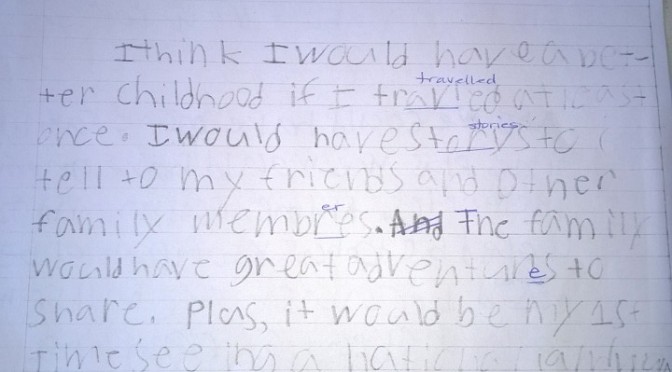 I think I would have a bet-
travelled
ter childhood if I travled at least
stories
once. I would have storys to
tell to my friends and other
er
family membres. And The family
would have great adventures to
share. Plus, it would be my 1st
time seeing a